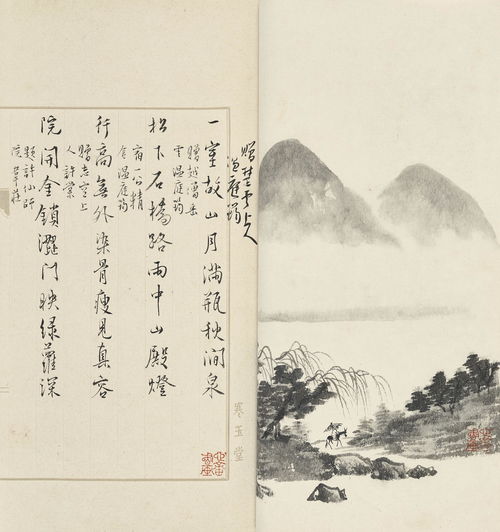 贈楚雲上人
溫庭筠
一室故山月滿瓶秋澗泉
贈越僧岳
雲溫庭筠
松下石橋路雨中山殿燈
宿一公精
舍溫庭筠
行高無外染骨瘦見真容
贈志空上
人許棠
院開金鎖澀門映綠蘿深
題許仙師
院韋莊
寒玉堂